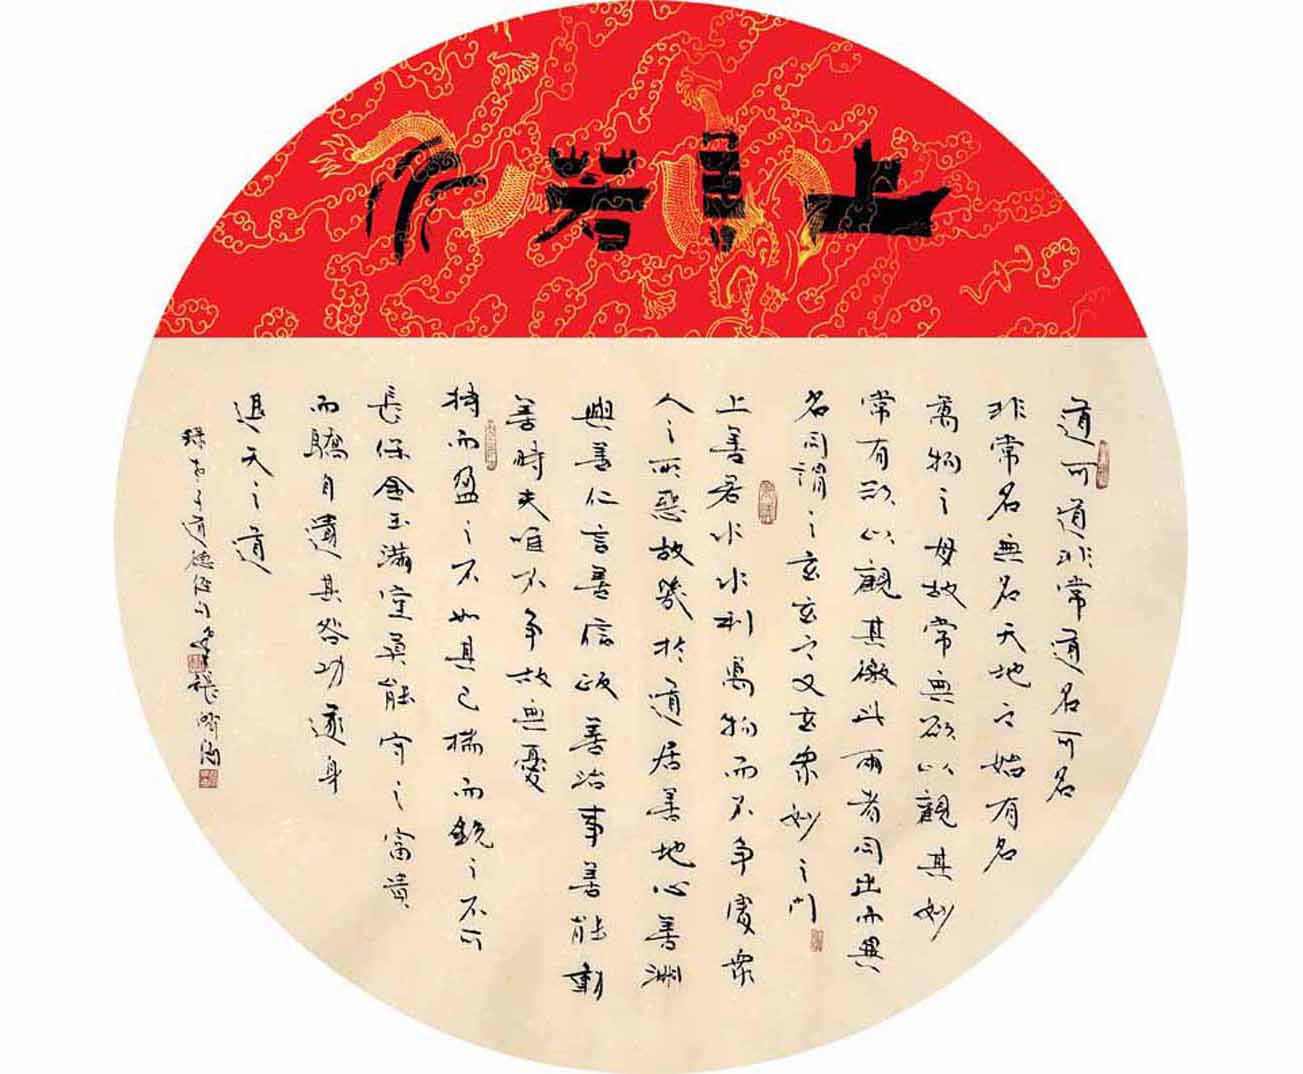 上善若水
道可道非常道名可名
非常名無名天地之始有名
萬物之母故常無欲以觀其妙
常有欲以觀其徼此兩者同出而異
名同謂之玄玄之又玄衆妙之門
上善若水水利萬物而不争處衆
人之所惡故幾於道居善地心善淵
與善仁言善信政善治事善能動
善時夫唯不争故無憂
持而盈之不如其已揣而銳之不可
長保金玉滿室莫能守之富貴
而驕自遺其咎功遂身
退天之道
錄老子道德經句